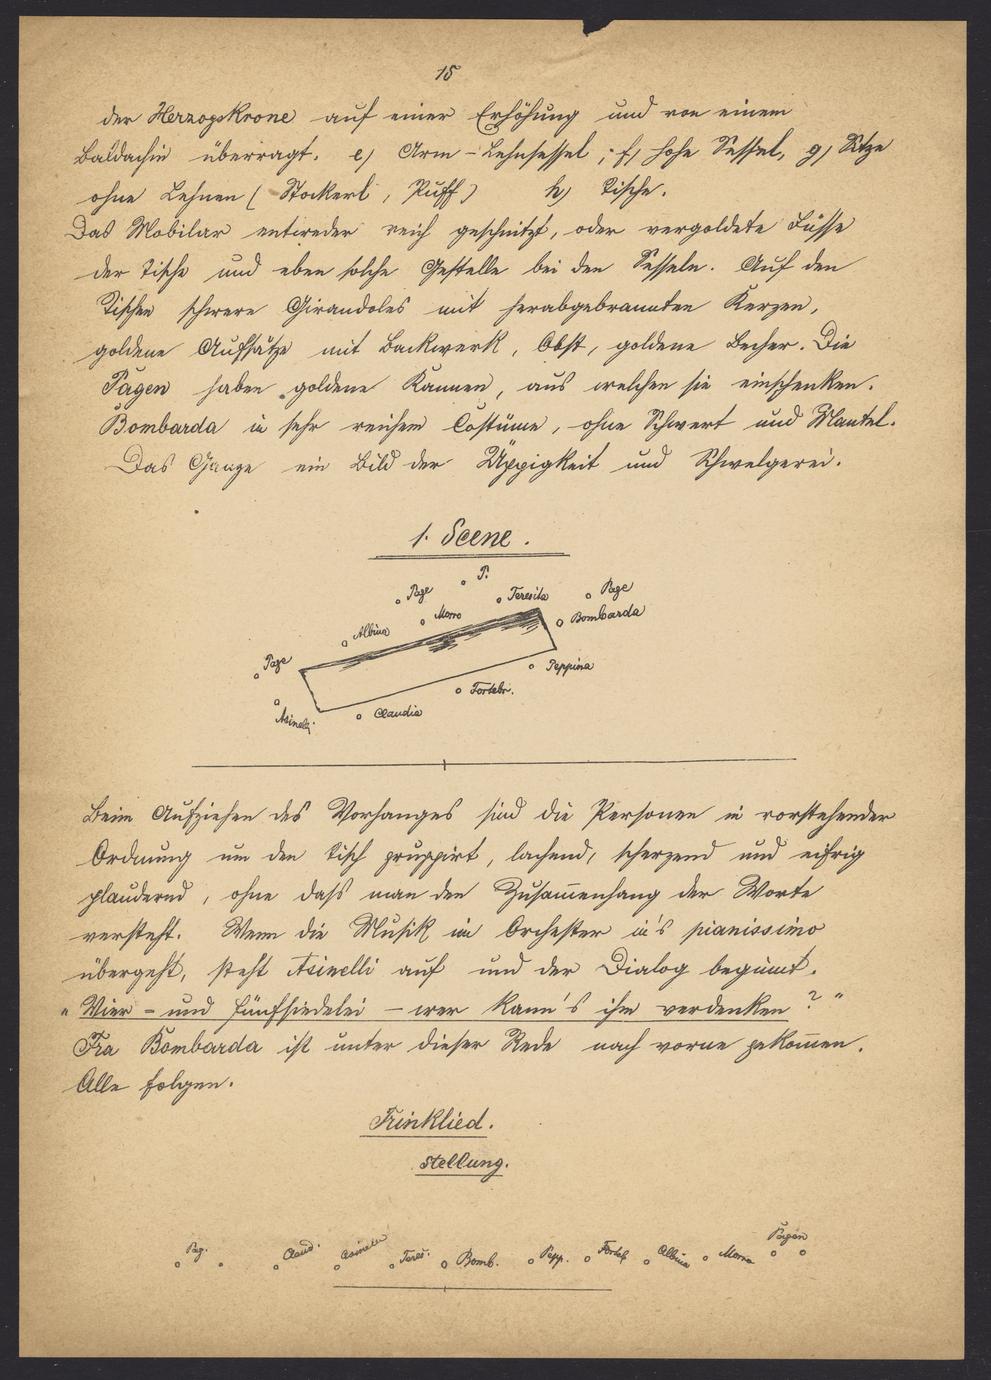 15
der Herzogskrone auf einer Erhöhung und von einem
Baldachin überragt. e) Arm-Lehnsessel; f) hohe Sessel, g) Sitze
ohne Lehnen (Stockerl, Puff) h) Tische.
Das Mobilar entweder reich geschnitzt, oder vergoldete Füsse
der Tische und eben solche Gestelle bei den Sesseln. Auf den
Tischen schwere Girandoles mit herabgebrannten Kerzen,
goldene Aufsätze mit Backwerk, Obst, goldene Becher. Die
Pagen haben goldene Kannen, aus welchen sie einschenken.
Bombarda in sehr reichem Costüme, ohne Schwert und Mantel.
Das Ganze ein Bild der Üppigkeit und Schwelgerei.
1. Scene.
P.
Page Teresita Page
Albina Morro Bombarda
Page Peppina
Fortebr.
Asinelli Claudia
Beim Aufziehen des Vorhanges sind die Personen in vorstehender
Ordnung um den Tisch gruppirt, lachend, scherzend und eifrig
plaudernd, ohne dass man den Zusam̅enhang der Worte
versteht. Wenn die Musik im Orchester in's pianissimo
übergeht, steht Asinelli auf und der Dialog beginnt.
"Vier- und fünfsiedelei - wer kann's ihm verdenken?"
Fra Bombarda ist unter dieser Rede nach vorne gekom̅en.
Alle folgen.
Trinklied.
Stellung.
Pag. Claud. Asinelli Teres. Bomb. Pepp. Forteb. Albina Morro Pagen